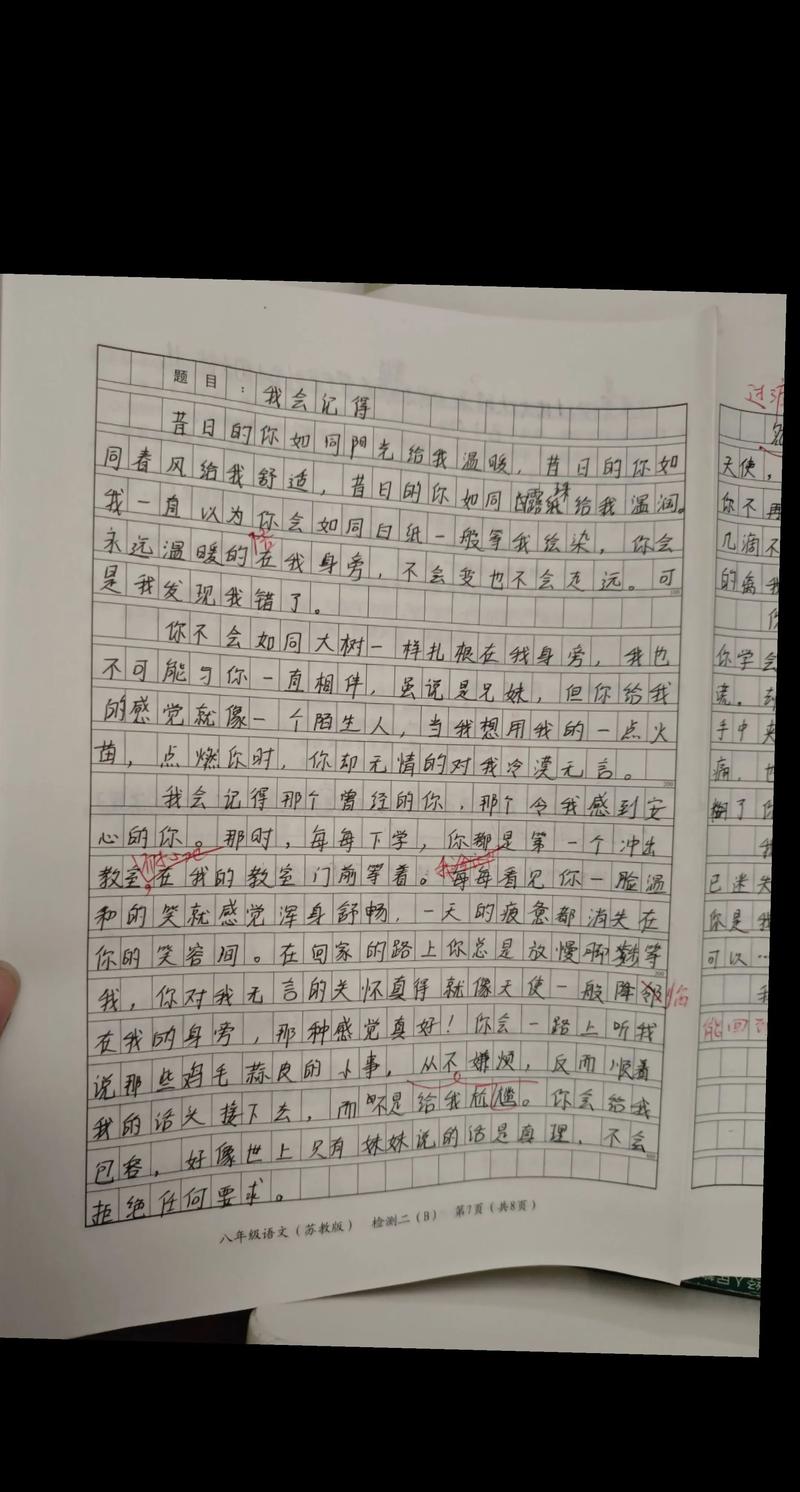 题目：我会记得
昔日的你如同阳光给我温暖，昔日的你如
同春风给我舒适，昔日的你如同露珠给我温润。
我一直以为你会如同白纸一般等我绘染，你会
永远温暖的陪在我身旁，不会变也不会走远。可
是我发现我错了。
你不会如同大树一样扎根在我身旁，我也
不可能与你一直相伴，虽说是兄妹，但你给我
的感觉就像一个陌生人，当我想用我的一点火
苗，点燃你时，你却无情的对我冷漠无言。
我会记得那个曾经的你，那个令我感到安
心的你。那时，每每下学，你都是第一个冲出
教室，在我的教室门前等着。每每看见你一脸温
和的笑就感觉浑身舒畅，一天的疲惫都消失在
你的笑容间。在回家的路上你总是放慢脚等
我，你对我无言的关怀真得就像天使一般降临
在我的身旁，那种感觉真好！你会一路上听我
说那些鸡毛蒜皮的小事，从不嫌烦，反而顺着
我的话头接下去，而不是给我尴尬。你会给我
包容，好像世上只有妹妹说的话是真理，不会
拒绝任何要求。
八年级语文（苏教版） 检测二（B） 第7页（共8页）
天使，
你不再
几滴不
的离我
你学会
手中夹
痛，也
糊了你
已迷失
你是我
可以…
能回